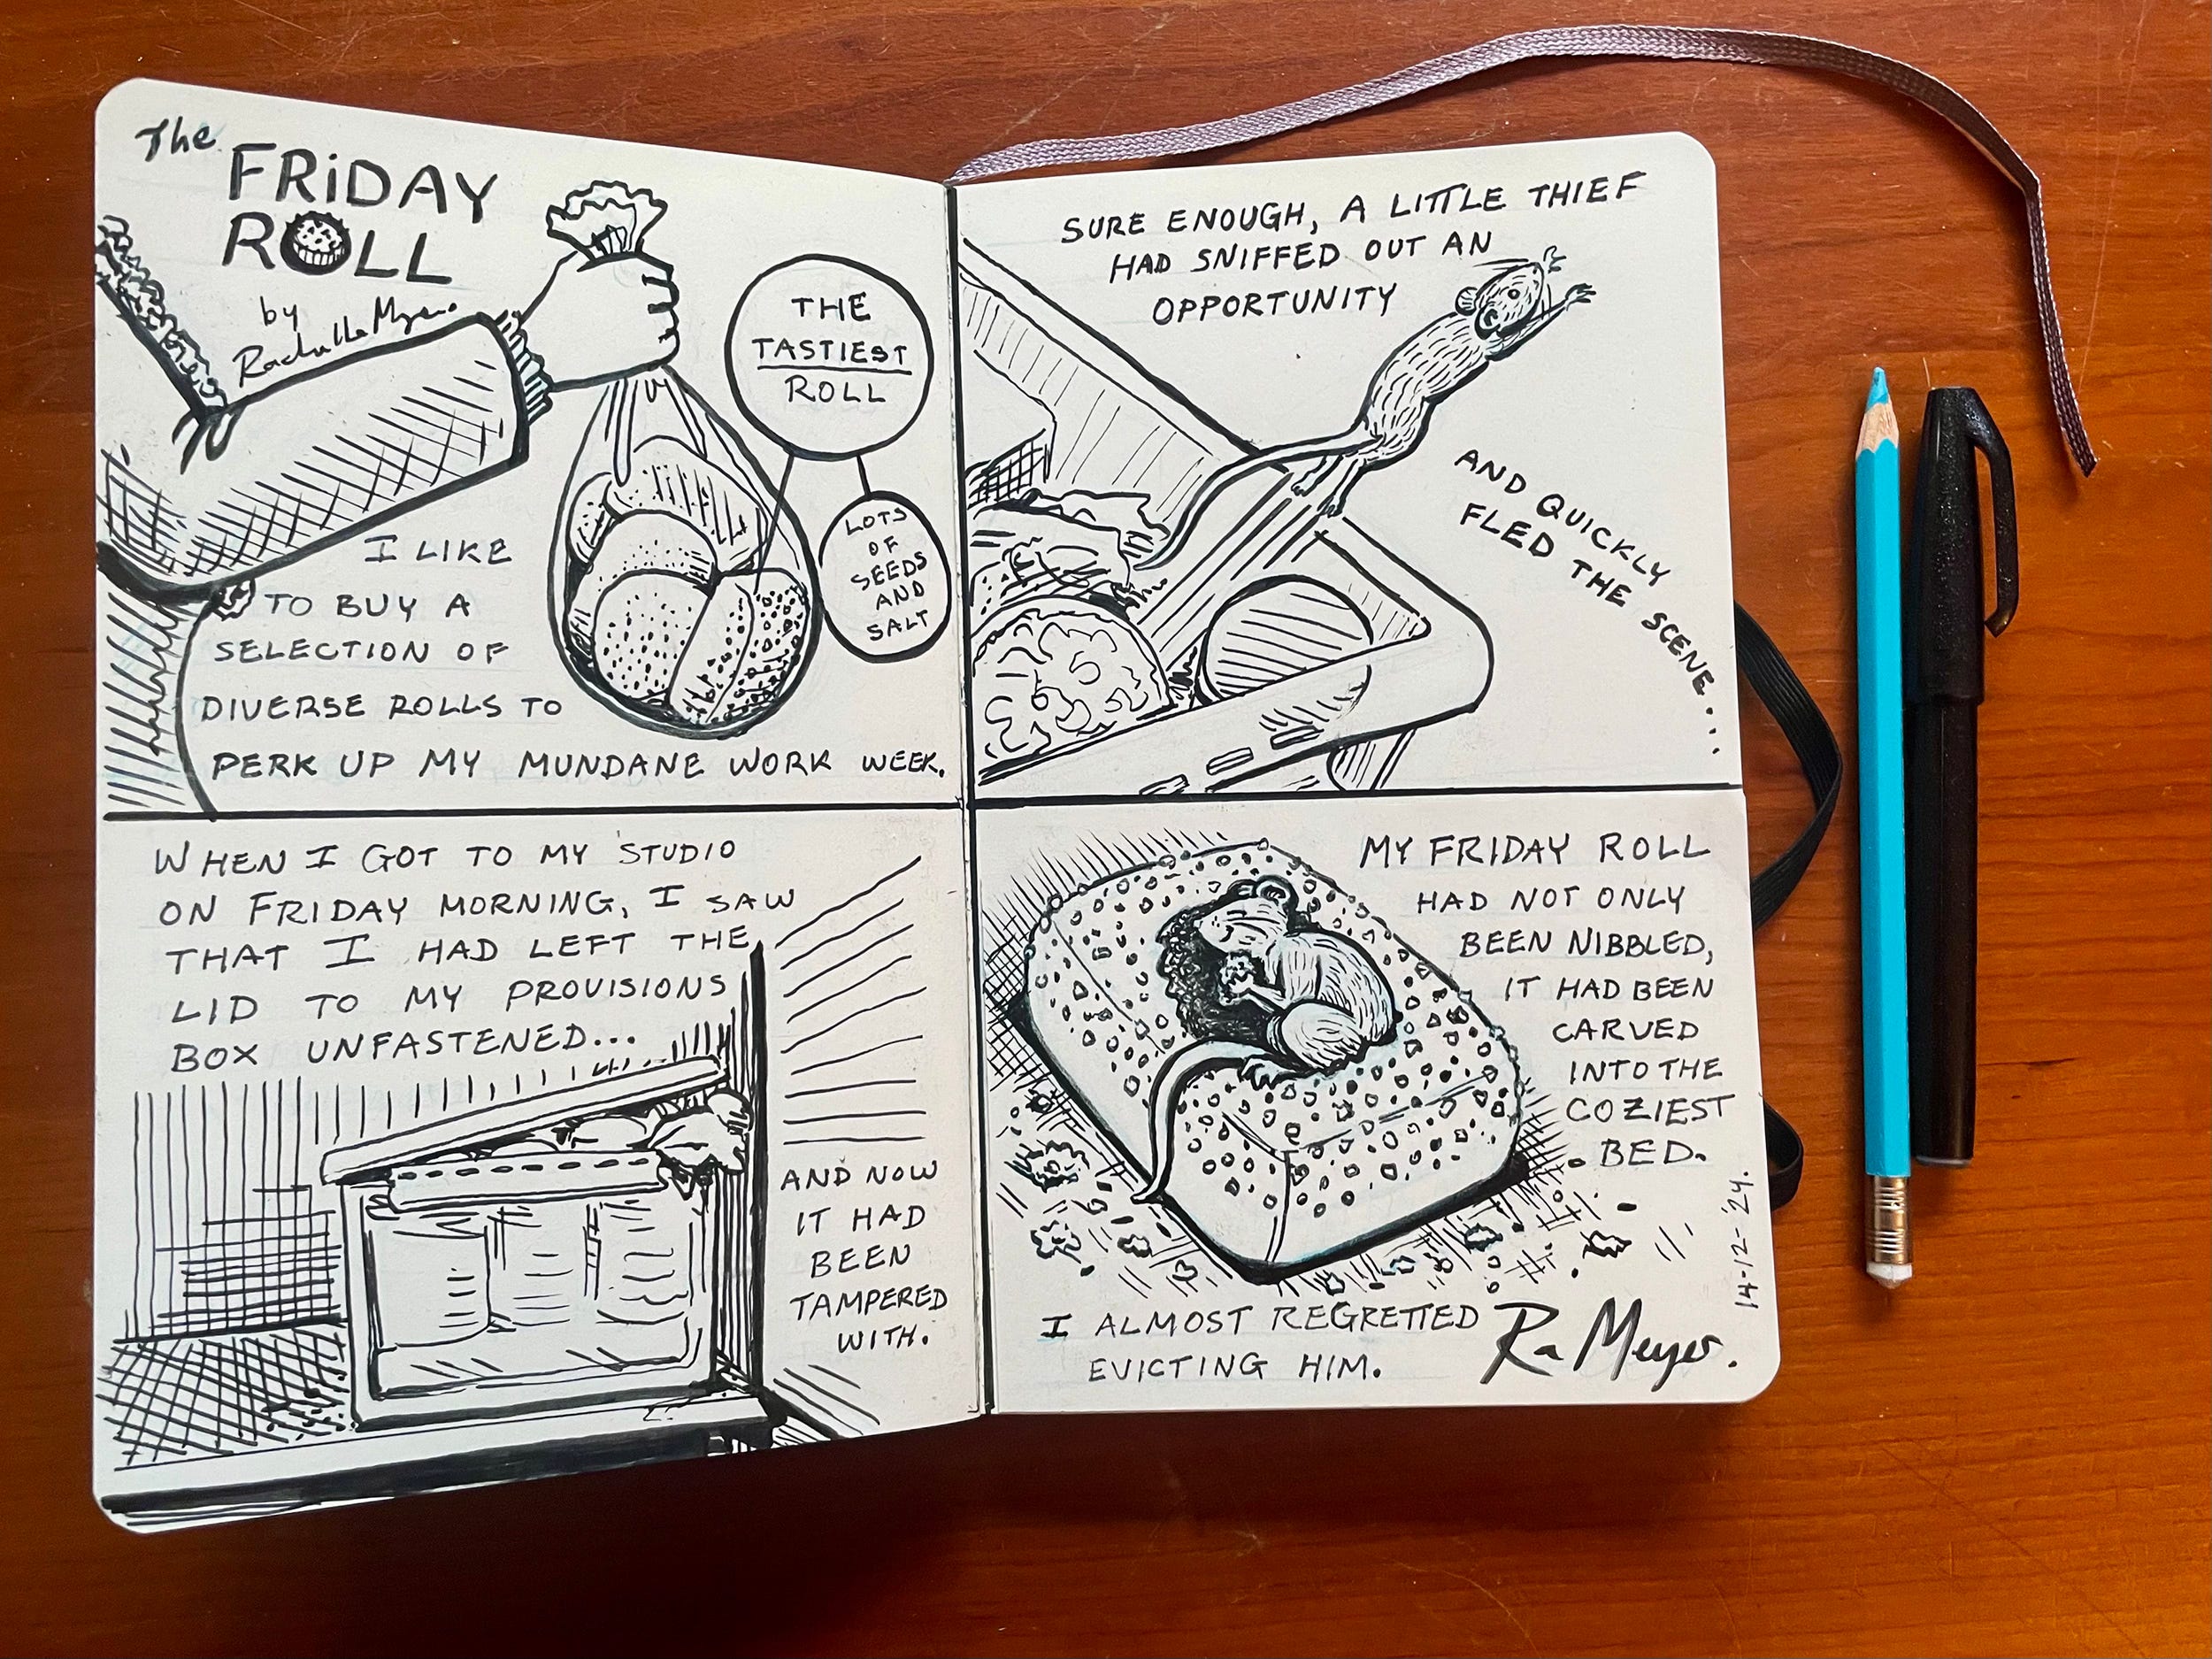 The
FRiDAY
ROLL
by
Rachelle Meyer.
THE
TASTIEST
ROLL
LOTS
OF
SEEDS
AND
SALT
I LIKE
TO BUY A
SELECTION OF
DIVERSE ROLLS TO
PERK UP MY MUNDANE WORK WEEK.
WHEN I GOT TO MY STUDIO
ON FRIDAY MORNING, I SAW
THAT I HAD LEFT THE
LID TO MY PROVISIONS
BOX UNFASTENED...
AND NOW
IT HAD
BEEN
TAMPERED
WITH.
SURE ENOUGH, A LITTLE THIEF
HAD SNIFFED OUT AN
OPPORTUNITY
AND QUICKLY
FLED THE SCENE...
MY FRIDAY ROLL
HAD NOT ONLY
BEEN NIBBLED,
IT HAD BEEN
CARVED
INTO THE
COZIEST
BED.
I ALMOST REGRETTED
EVICTING HIM.
Ra Meyer.
14-12-'24.